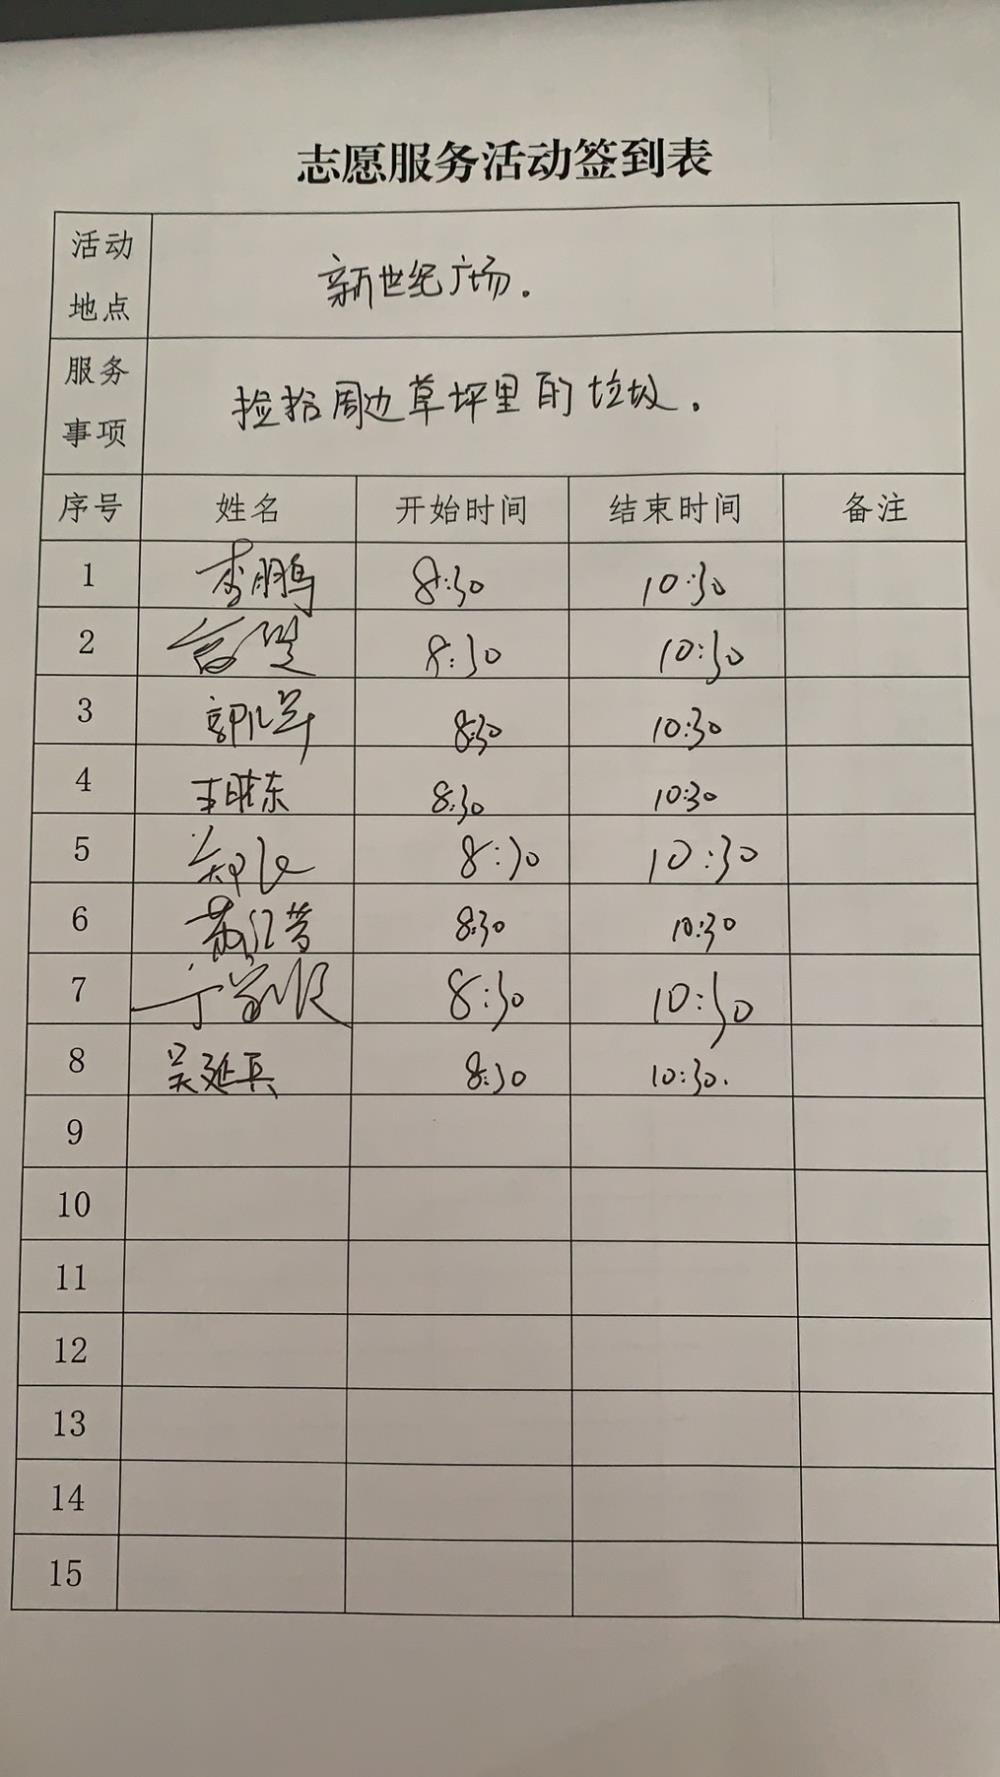 志愿服务活动签到表
活动地点 新世纪广场.
服务事项 捡拾周边草坪里的垃圾.
序号 姓名 开始时间 结束时间 备注
1 李鹏 8:30 10:30
2 8:30 10:30
3 8:30 10:30
4 王胜东 8:30 10:30
5 8:30 10:30
6 8:30 10:30
7 8:30 10:30
8 吴延兵 8:30 10:30.
9
10
11
12
13
14
15